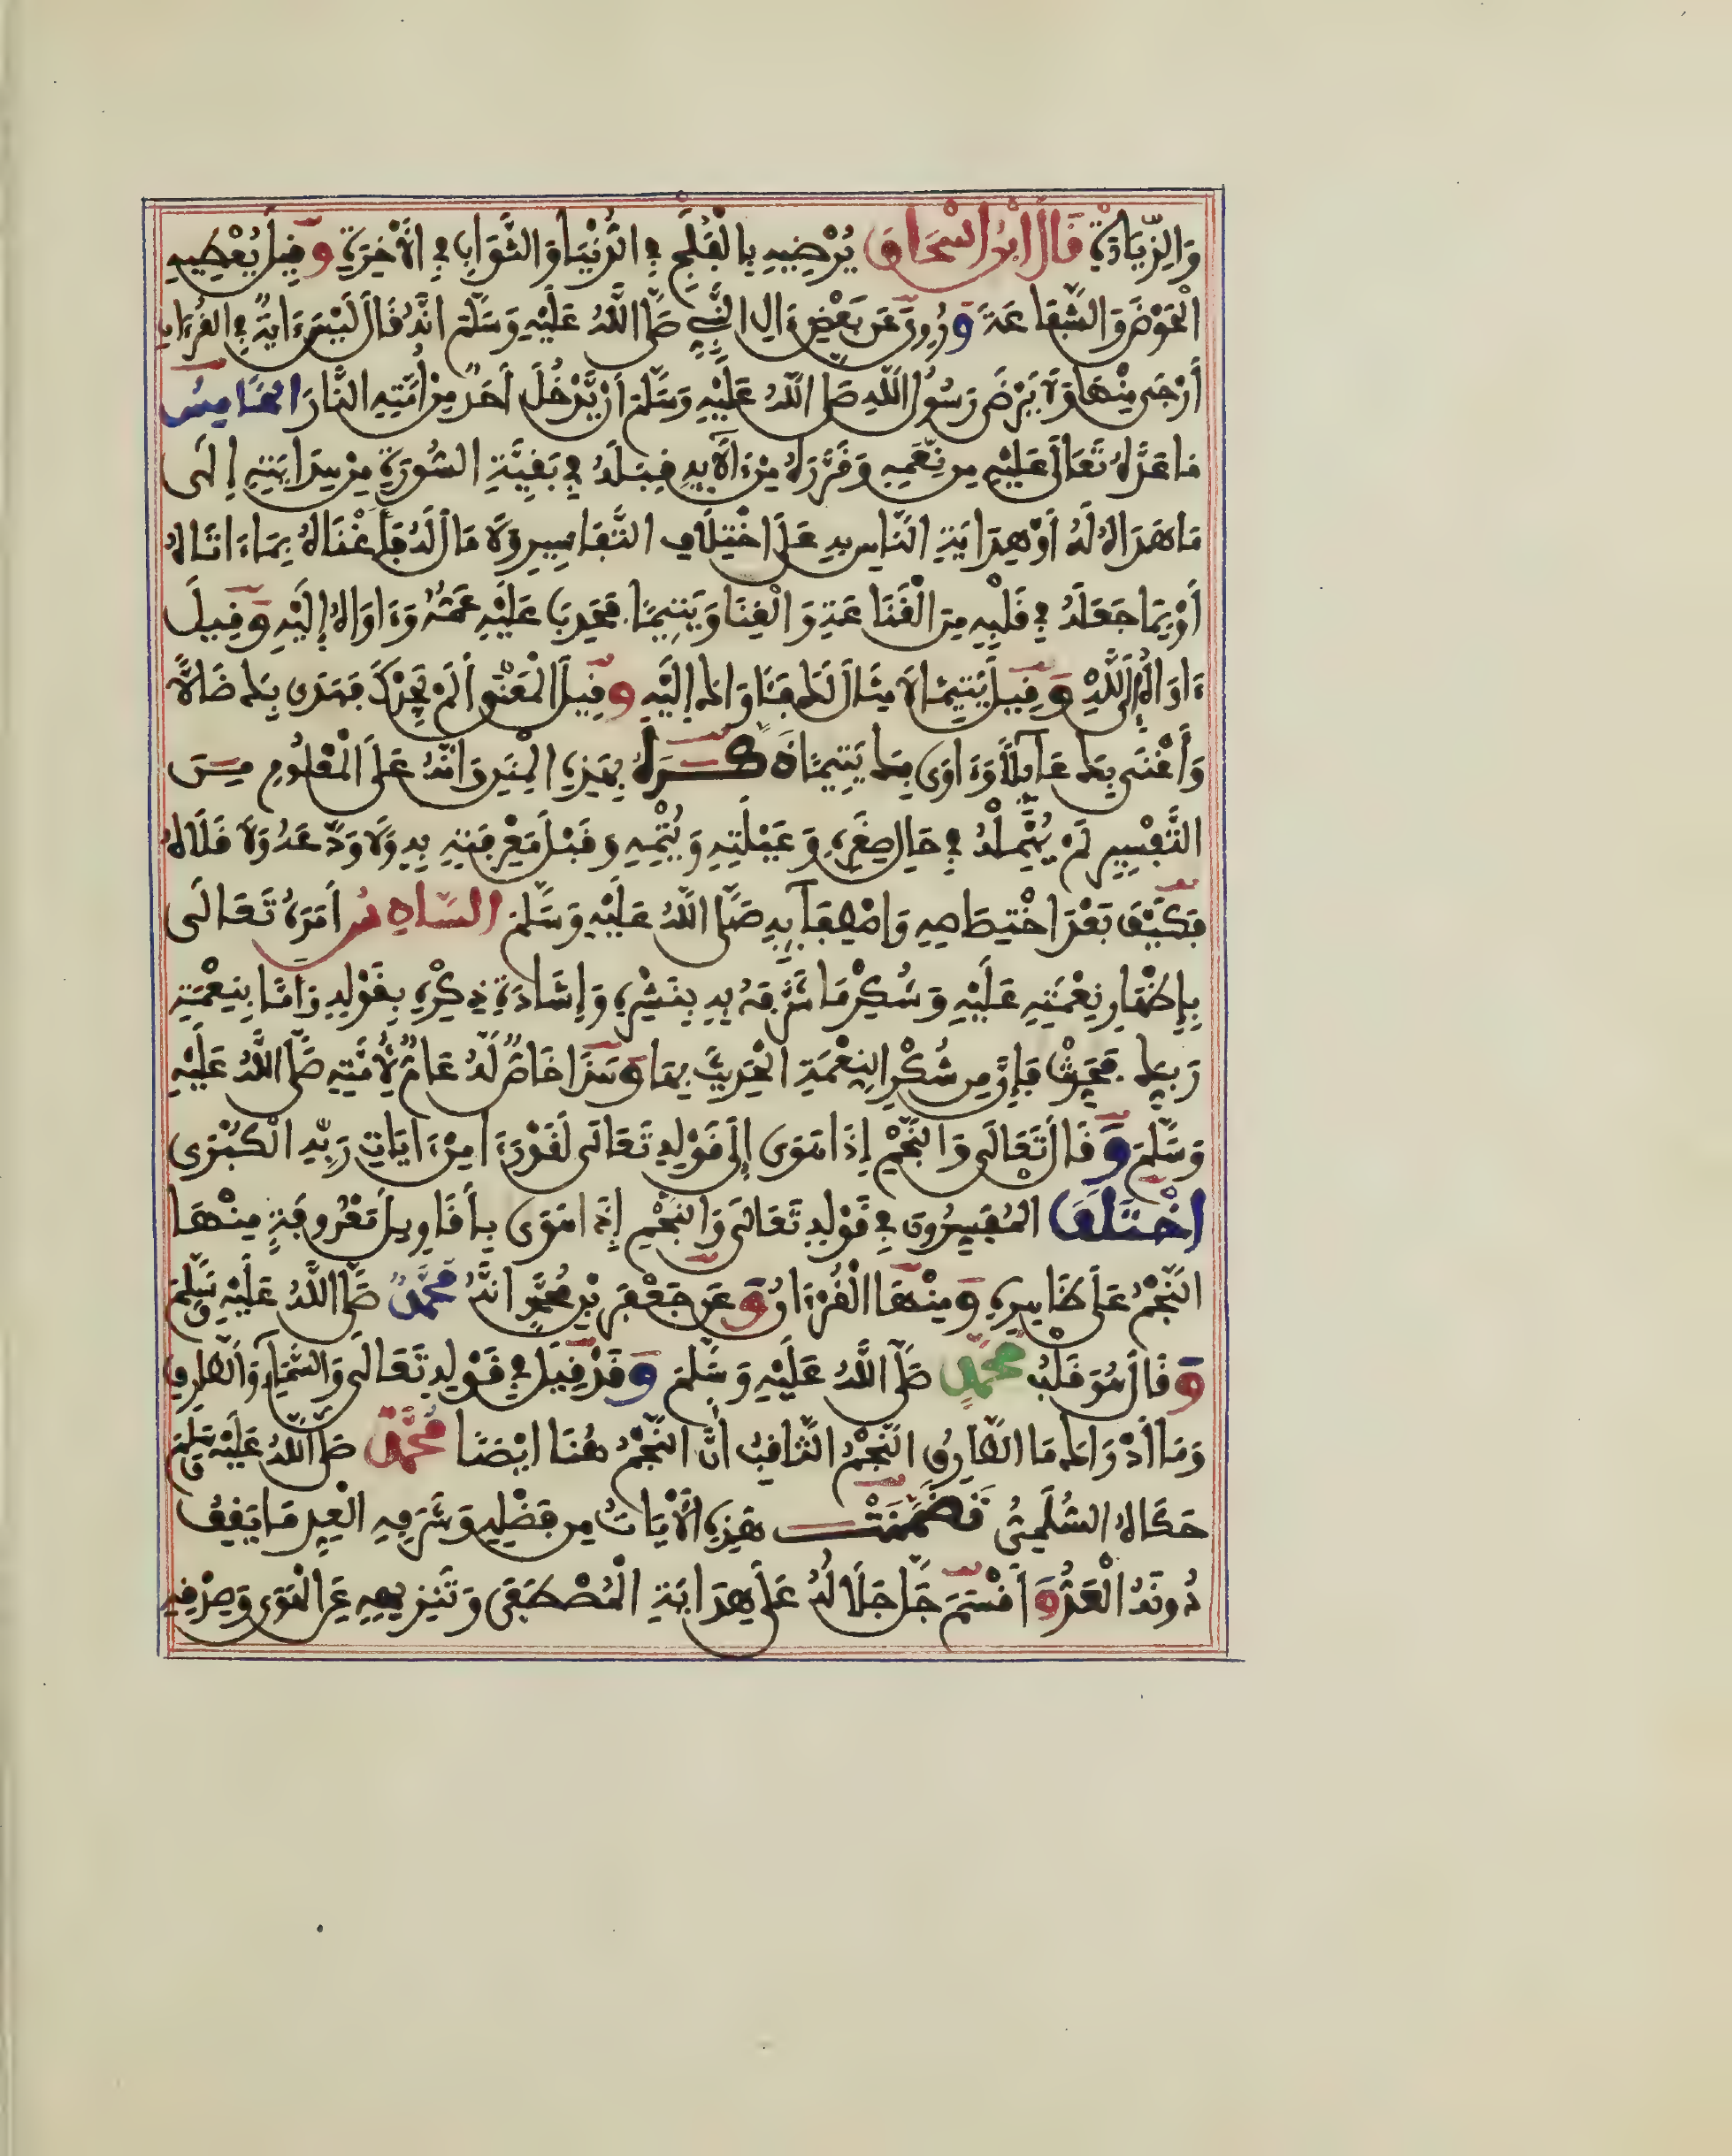 وَالزِّيَادَةِ قَالَ ابْنُ اسْحَاقَ يُرْضِيهِ بِالْفَلَجِ فِي الدُّنْيَا وَالثَّوَابِ فِي الْأَخِرَةِ وَقِيلَ يُعْطِيهِ
الْحَوْضَ وَالشَّفَاعَةَ وَرُوِيَ عَن بَعْضِ ءَالِ النَّبِيِّ صَلَّى اللَّهُ عَلَيْهِ وَسَلَّمَ انَّهُ قَالَ لَيْسَ ءَايَةٌ فِي الْقُرْءَانِ
أَرْجَى مِنْهَا وَلَا يَرْضَى رَسُولُ اللَّهِ صَلَّى اللَّهُ عَلَيْهِ وَسَلَّمَ أَنْ يَّدْخُلَ أَحَدٌ مِنْ أُمَّتِهِ النَّارَ الْخَامِسُ
مَا عَدَّهُ تَعَالَى عَلَيْهِ مِن نِّعَمِهِ وَقَرَّرَهُ مِنْ ءَالَآئِهِ قِبَلَهُ فِي بَقِيَّةِ السُّورَةِ مِنْ هِدَايَتِهِ إِلَى
مَا هَدَاهُ لَهُ أَوْ هِدَايَةِ النَّاسِ بِهِ عَلَى اخْتِلَافِ التَّفَاسِيرِ وَلَا مَالَ لَهُ فَأَغْنَاهُ بِمَا ءَاتَاهُ
أَوْ بِمَا جَعَلَهُ فِي قَلْبِهِ مِنَ الْقَنَاعَةِ وَالْغِنَا وَيَتِيمًا فَحَدِبَ عَلَيْهِ عَمُّهُ وَءَاوَاهُ إِلَيْهِ وَقِيلَ
ءَاوَاهُ إِلَى اللَّهِ وَقِيلَ يَتِيمًا لَا مِثَالَ لَكَ فَئَاوَاكَ إِلَيْهِ وَقِيلَ الْمَعْنَى أَلَمْ يَجِدْكَ فَهَدَى بِكَ ضَالًّا
وَأَغْنَى بِكَ عَآئِلًا وَءَاوَى بِكَ يَتِيمًا ذَكَّرَهُ بِهَذِهِ الْمِنَنِ وَانَّهُ عَلَى الْمَعْلُومِ مِنَ
التَّفْسِيرِ لَمْ يُهْمِلْهُ فِي حَالِ صِغَرِهِ وَعَيْلَتِهِ وَيُتْمِهِ وَقَبْلَ مَعْرِفَتِهِ بِهِ وَلَا وَدَّعَهُ وَلَا قَلَاهُ
فَكَيْفَ بَعْدَ اخْتِصَاصِهِ وَاصْطِفَآئِهِ صَلَّى اللَّهُ عَلَيْهِ وَسَلَّمَ السَّادِسُ أَمَرَهُ تَعَالَى
بِإِظْهَارِ نِعْمَتِهِ عَلَيْهِ وَشُكْرِ مَا شَرَّفَهُ بِهِ بِنَشْرِهِ وَإِشَادَةِ ذِكْرِهِ بِقَوْلِهِ وَامَّا بِنِعْمَةِ
رَبِّكَ فَحَدِّثْ فَإِنَّ مِن شُكْرِ النِّعْمَةِ الْحَدِيثَ بِهَا وَهَذَا خَاصٌّ لَّهُ عَامٌّ لِّأُمَّتِهِ صَلَّى اللَّهُ عَلَيْهِ
وَسَلَّمَ وَقَالَ تَعَالَى وَالنَّجْمِ إِذَا هَوَى إِلَى قَوْلِهِ تَعَالَى لَقَدْ رَءَا مِنْ ءَايَاتِ رَبِّهِ الْكُبْرَى
اخْتَلَفَ الْمُفَسِّرُونَ فِي قَوْلِهِ تَعَالَى وَالنَّجْمِ إِذَا هَوَى بِأَقَاوِيلَ مَعْرُوفَةٍ مِنْهَا
النَّجْمُ عَلَى ظَاهِرِهِ وَمِنْهَا الْقُرْءَانُ وَعَن جَعْفَرِ بْنِ مُحَمَّدٍ انَّهُ مُحَمَّدٌ صَلَّى اللَّهُ عَلَيْهِ وَسَلَّمَ
وَقَالَ هُوَ قَلْبُ مُحَمَّدٍ صَلَّى اللَّهُ عَلَيْهِ وَسَلَّمَ وَقَدْ قِيلَ فِي قَوْلِهِ تَعَالَى وَالسَّمَآءِ وَالطَّارِقِ
وَمَا أَدْرَاكَ مَا الطَّارِقُ النَّجْمُ الثَّاقِبُ انَّ النَّجْمَ هُنَا ايْضًا مُحَمَّدٌ صَلَّى اللَّهُ عَلَيْهِ وَسَلَّمَ
حَكَاهُ السُّلَمِيُّ تَضَمَّنَتْ هَذِهِ الْأَيَاتُ مِن فَضْلِهِ وَشَرَفِهِ الْعِدِّ مَا يَقِفُ
دُونَهُ الْعَدُّ وَأَقْسَمَ جَلَّ جَلَالُهُ عَلَى هِدَايَةِ الْمُصْطَفَى وَتَنْزِيهِهِ عَنِ الْهَوَى وَصِدْقِهِ